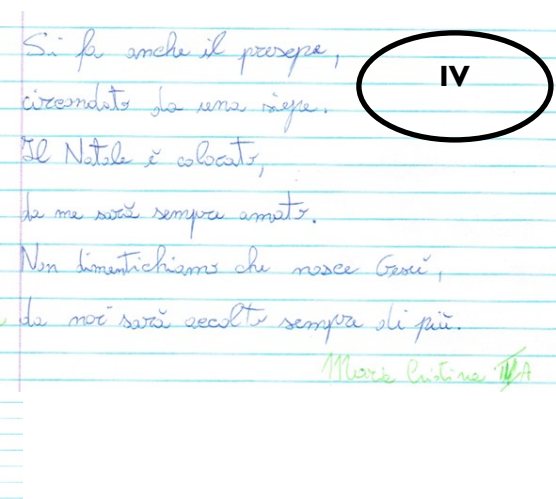 Si fa anche il presepe,
IV
circondato da una siepe.
Il Natale è colorato,
da me sarà sempre amato.
Non dimentichiamo che nasce Gesù,
da noi sarà accolto sempre di più.
Maria Cristina IV A